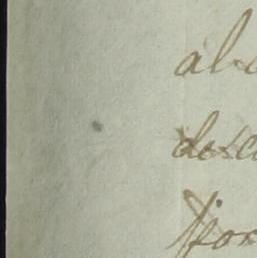 al
desc
for